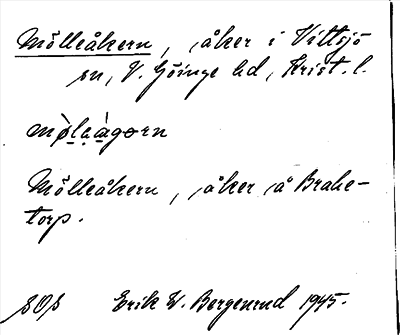 Mölleåkern, åker i Vittsjö
sn, V. Göinge hd, Krist. l.
mø̀laàgorn
Mölleåkern, åker å Brake-
torp.
Erik W. Bergenrud 1945.